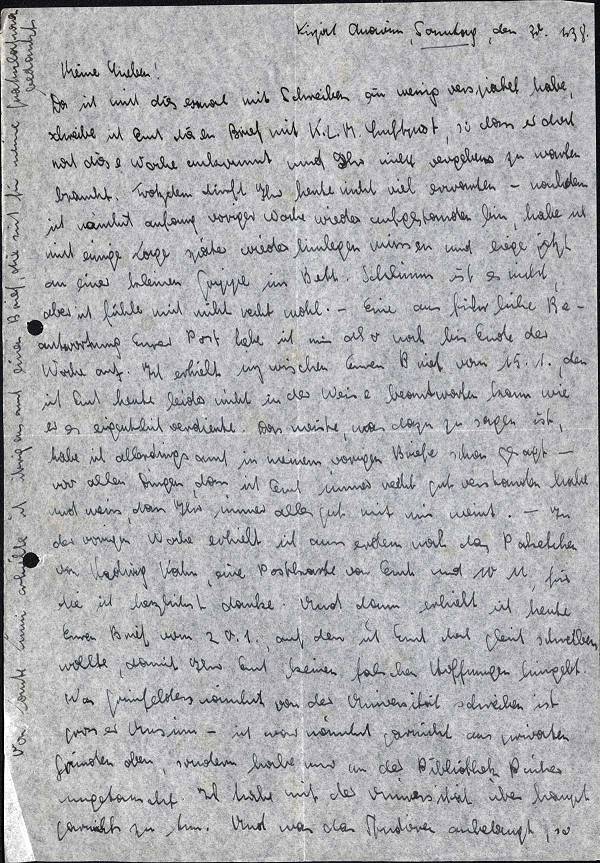 Kirjat Anavim, Sonntag, den 30.1.38.
Meine Lieben!
Da ich mich diesmal mit Schreiben ein wenig verspätet habe,
schreibe ich Euch diesen Brief mit K.L.M. Luftpost, so dass er doch
noch diese Woche ankommt und Ihr nicht vergebens zu warten
braucht. Trotzdem dürft Ihr heute nicht viel erwarten – nachdem
ich nämlich anfang voriger Woche wieder aufgestanden bin, habe ich
mich einige Tage später wieder hinlegen müssen und liege jetzt
an einer kleinen Grippe im Bett. Schlimm ist es nicht,
aber ich fühle mich nicht recht wohl. – Eine ausführliche Be-
antwortung Eurer Post hebe ich mir also noch bis Ende der
Woche auf. Ich erhielt inzwischen Euren Brief vom 15.1., den
ich Euch heute leider nicht in der Weise beantworten kann wie
er es eigentlich verdiente. Das meiste, was dazu zu sagen ist,
habe ich allerdings auch in meinem vorigen Briefe schon gesagt –
vor allen Dingen, dass ich Euch immer recht gut verstanden habe
und weiss, dass Ihr immer alles gut mit mir meint. – In
der vorigen Woche erhielt ich ausserdem noch das Päckchen
von Hedwig Kahn, eine Postkarte von Euch und W M, für
die ich herzlichst danke. Und dann erhielt ich heute
Euren Brief vom 20.1., auf den ich Euch doch gleich schreiben
wollte, damit Ihr Euch keinen falschen Hoffnungen hingebt.
Was Grünfelders nämlich von der Universität schreiben ist
grosser Unsinn – ich war nämlich garnicht aus privaten
Gründen oben, sondern habe nur in der Bibliothek Bücher
umgetauscht. Ich habe mit der Universität überhaupt
garnichts zu tun. Und was das Studieren anbelangt, so
Von Tante Emmi erhielt ich einen Brief, die sich für meine Gratulation
bedankt